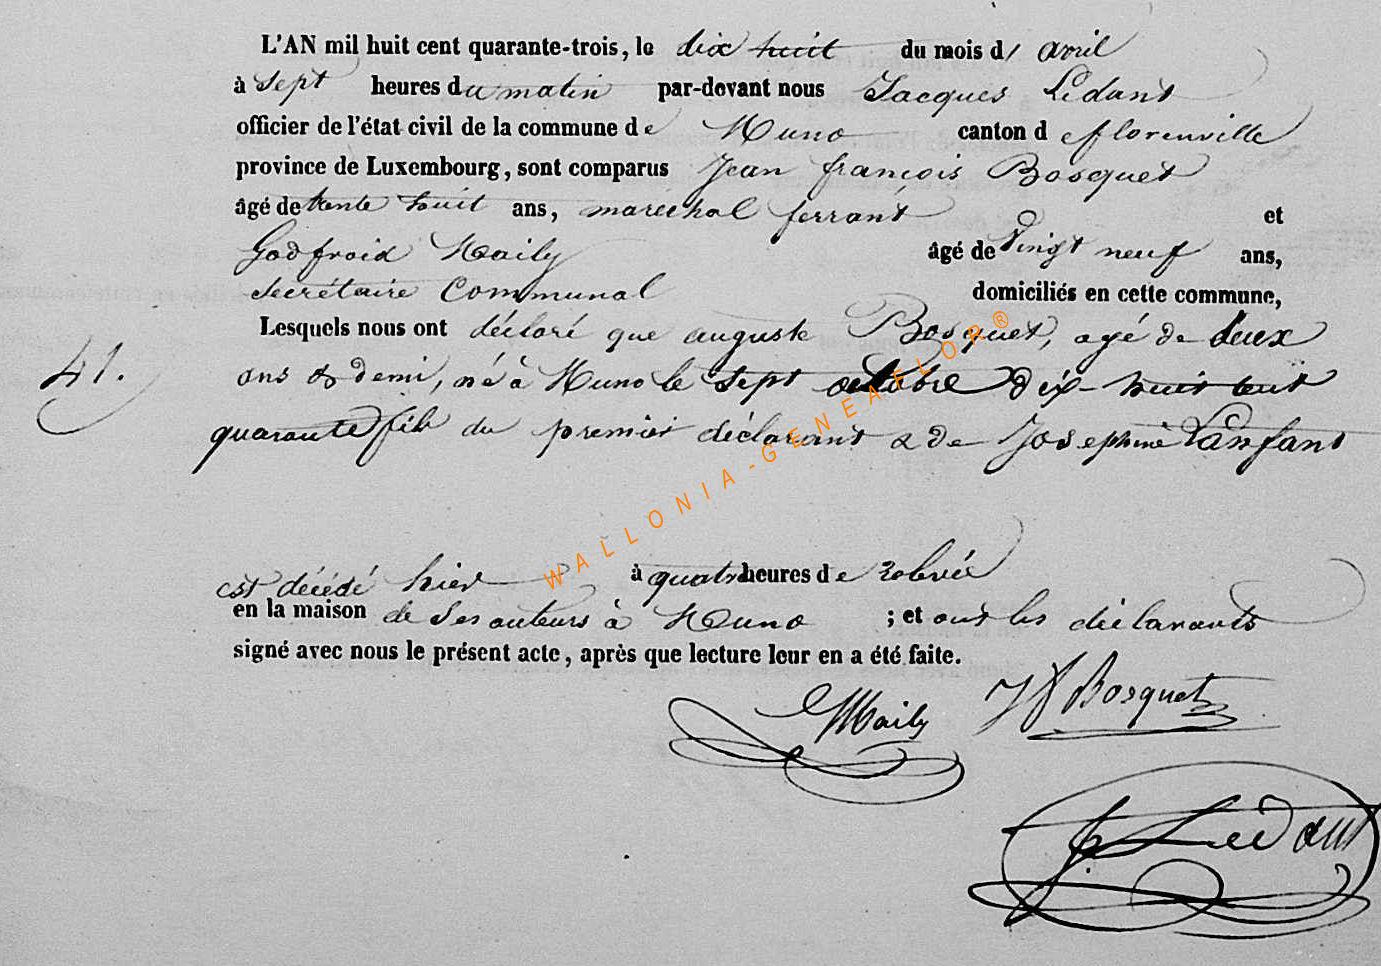 L'AN mil huit cent quarante-trois, le dix huit du mois d' avril
à sept heures du matin par-devant nous Jacques Lédant
officier de l'état civil de la commune de Muno canton d e florenville
province de Luxembourg, sont comparus Jean françois Bosquet
âgé de trente huit ans, maréchal ferrant et
Godfroid Maily âgé de vingt neuf ans,
secrétaire Communal domiciliés en cette commune,
Lesquels nous ont déclaré que auguste Bosquet, agé de deux
41.
ans & demi, né à Muno le sept octobre dix-huit cent
quarante fils du premier déclarant & de Josephine Lanfant
est décédé hier à quatre heures de relevée
en la maison de ses auteurs à Muno ; et ont les déclarants
signé avec nous le présent acte, après que lecture leur en a été faite.
GMaily JF Bosquet
Lédant
WALLONIA-GENEAFLOR®